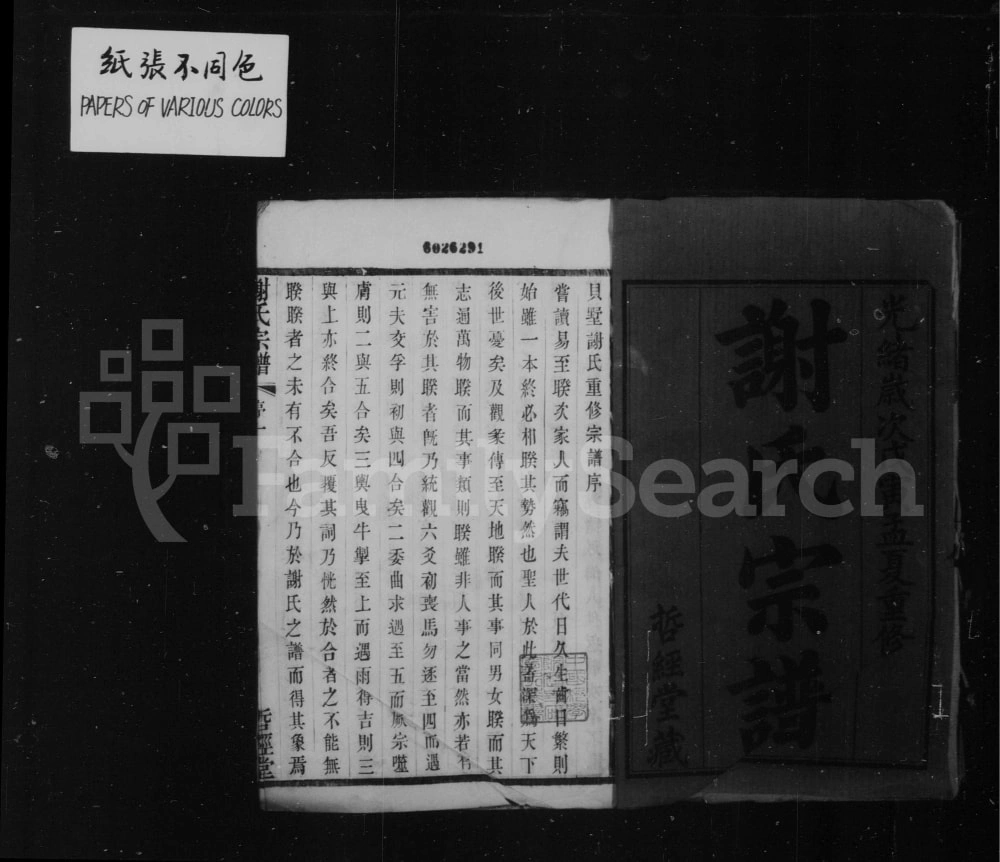 纸張不同色
PAPERS OF VARIOUS COLORS
6026291
光緒歲次戊孟夏重修
謝氏宗譜
哲經堂藏
貝墅謝氏重修宗譜序
嘗讀易至睽次家人而竊謂夫世代日久生齒日繁則
始雖一本終必相睽其勢然也聖人於此蓋深為天下
後世憂矣及觀彖傳至天地睽而其事同男女睽而其
志通萬物睽而其事類則睽雖非人事之當然亦若有
無害於其睽者旣乃統觀六爻初喪馬勿逐至四而遇
元夫交孚則初與四合矣二委曲求遇至五而厥宗噬
膚則二與五合矣三輿曳牛掣至上而遇雨得吉則三
與上亦終合矣吾反覆其詞乃恍然於合者之不能無
睽睽者之未有不合也今乃於謝氏之譜而得其象焉
謝氏宗譜
序一
哲經堂
FamilySearch